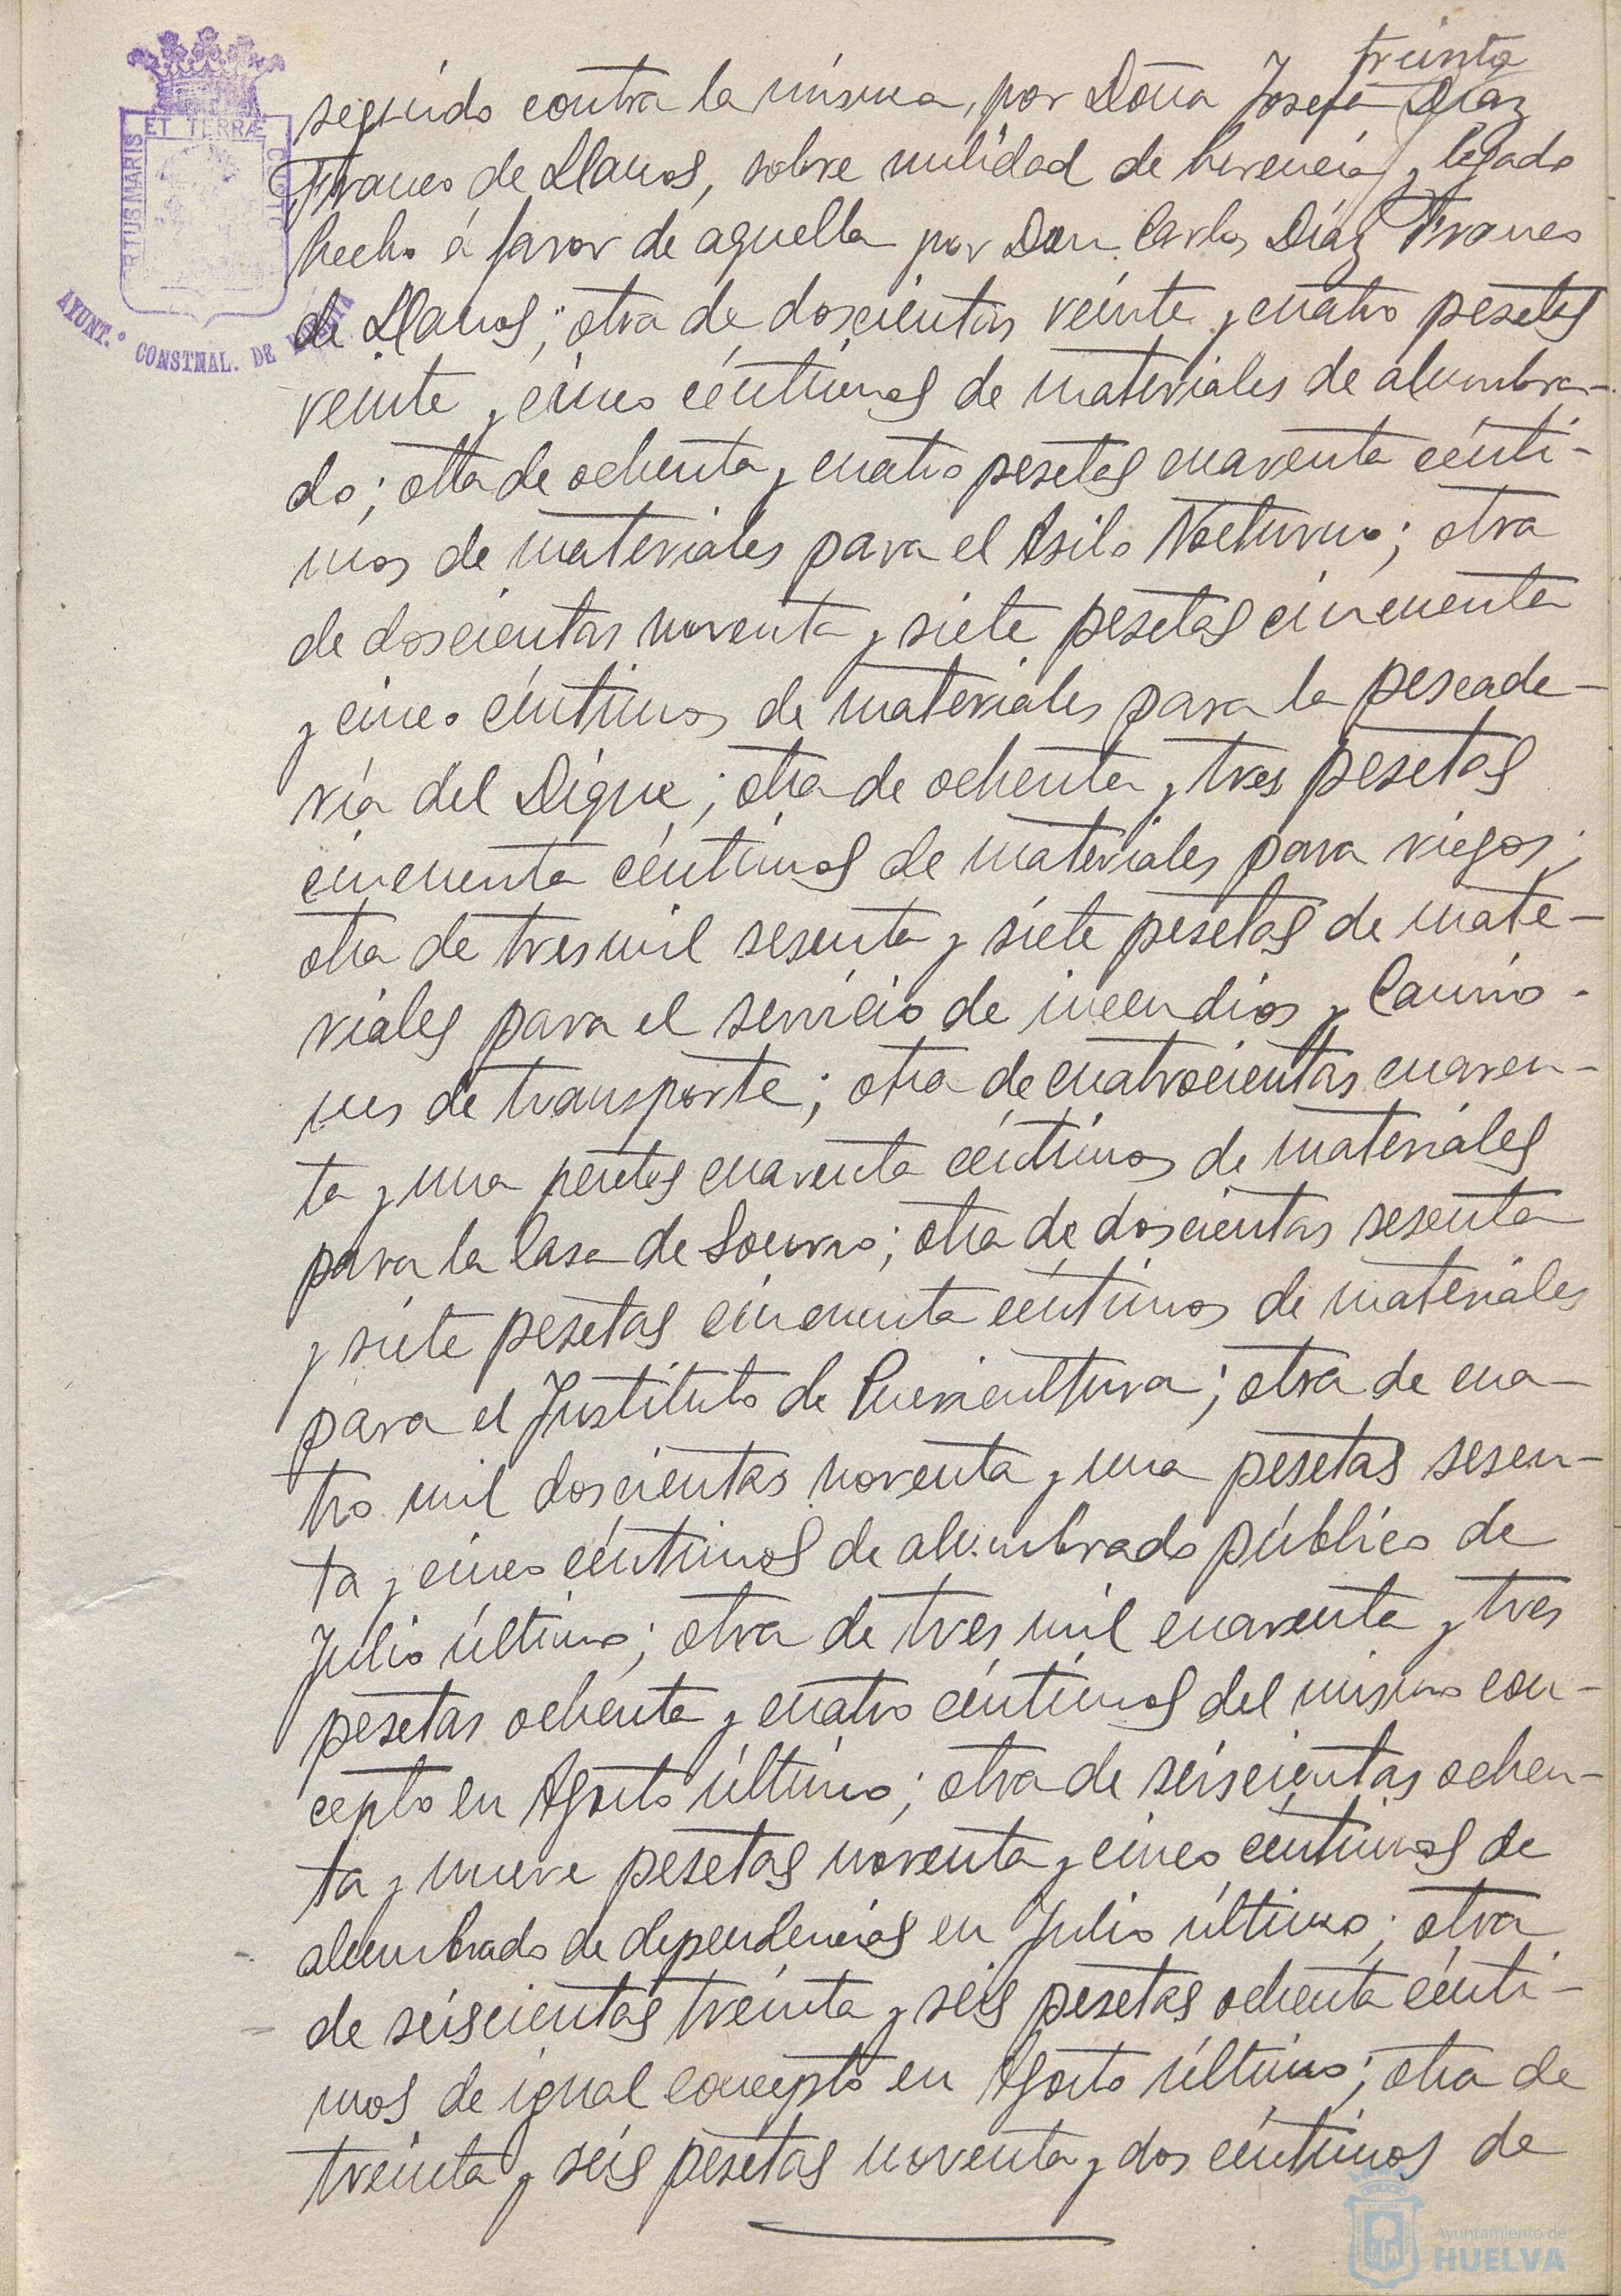 treinta
seguido contra la misma, por Doña Josefa Díaz
Franco de Llanos, sobre nulidad de herencia y legado
hecho á favor de aquella por Don Carlos Díaz Franco
de Llanos; otra de doscientas veinte y cuatro pesetas
veinte y cinco céntimos de materiales de alumbra-
do; otra de ochenta y cuatro pesetas cuarenta cénti-
mos de materiales para el Asilo Nocturno; otra
de doscientas noventa y siete pesetas cincuenta
y cinco céntimos de materiales para la pescade-
ría del Dique; otra de ochenta y tres pesetas
cincuenta céntimos de materiales para riegos;
otra de tres mil sesenta y siete pesetas de mate-
riales para el servicio de incendios y Camio-
nes de transporte; otra de cuatrocientas cuaren-
ta y una pesetas cuarenta céntimos de materiales
para la Casa de Socorro; otra de doscientas sesenta
y siete pesetas cincuenta céntimos de materiales
para el Instituto de Puericultura; otra de cua-
tro mil doscientas noventa y una pesetas sesen-
ta y cinco céntimos de alumbrado público de
Julio último; otra de tres mil cuarenta y tres
pesetas ochenta y cuatro céntimos del mismo con-
cepto en Agosto último; otra de seiscientas ochen-
ta y nueve pesetas noventa y cinco céntimos de
alumbrado de dependencias en Julio último; otra
de seiscientas treinta y seis pesetas ochenta cénti-
mos de igual concepto en Agosto último; otra de
treinta y seis pesetas noventa y dos céntimos de
ET TERRÆ
PORTUS MARIS
CUSTODIA
AYUNT.º CONSTNAL. DE HUELVA
Ayuntamiento de
HUELVA